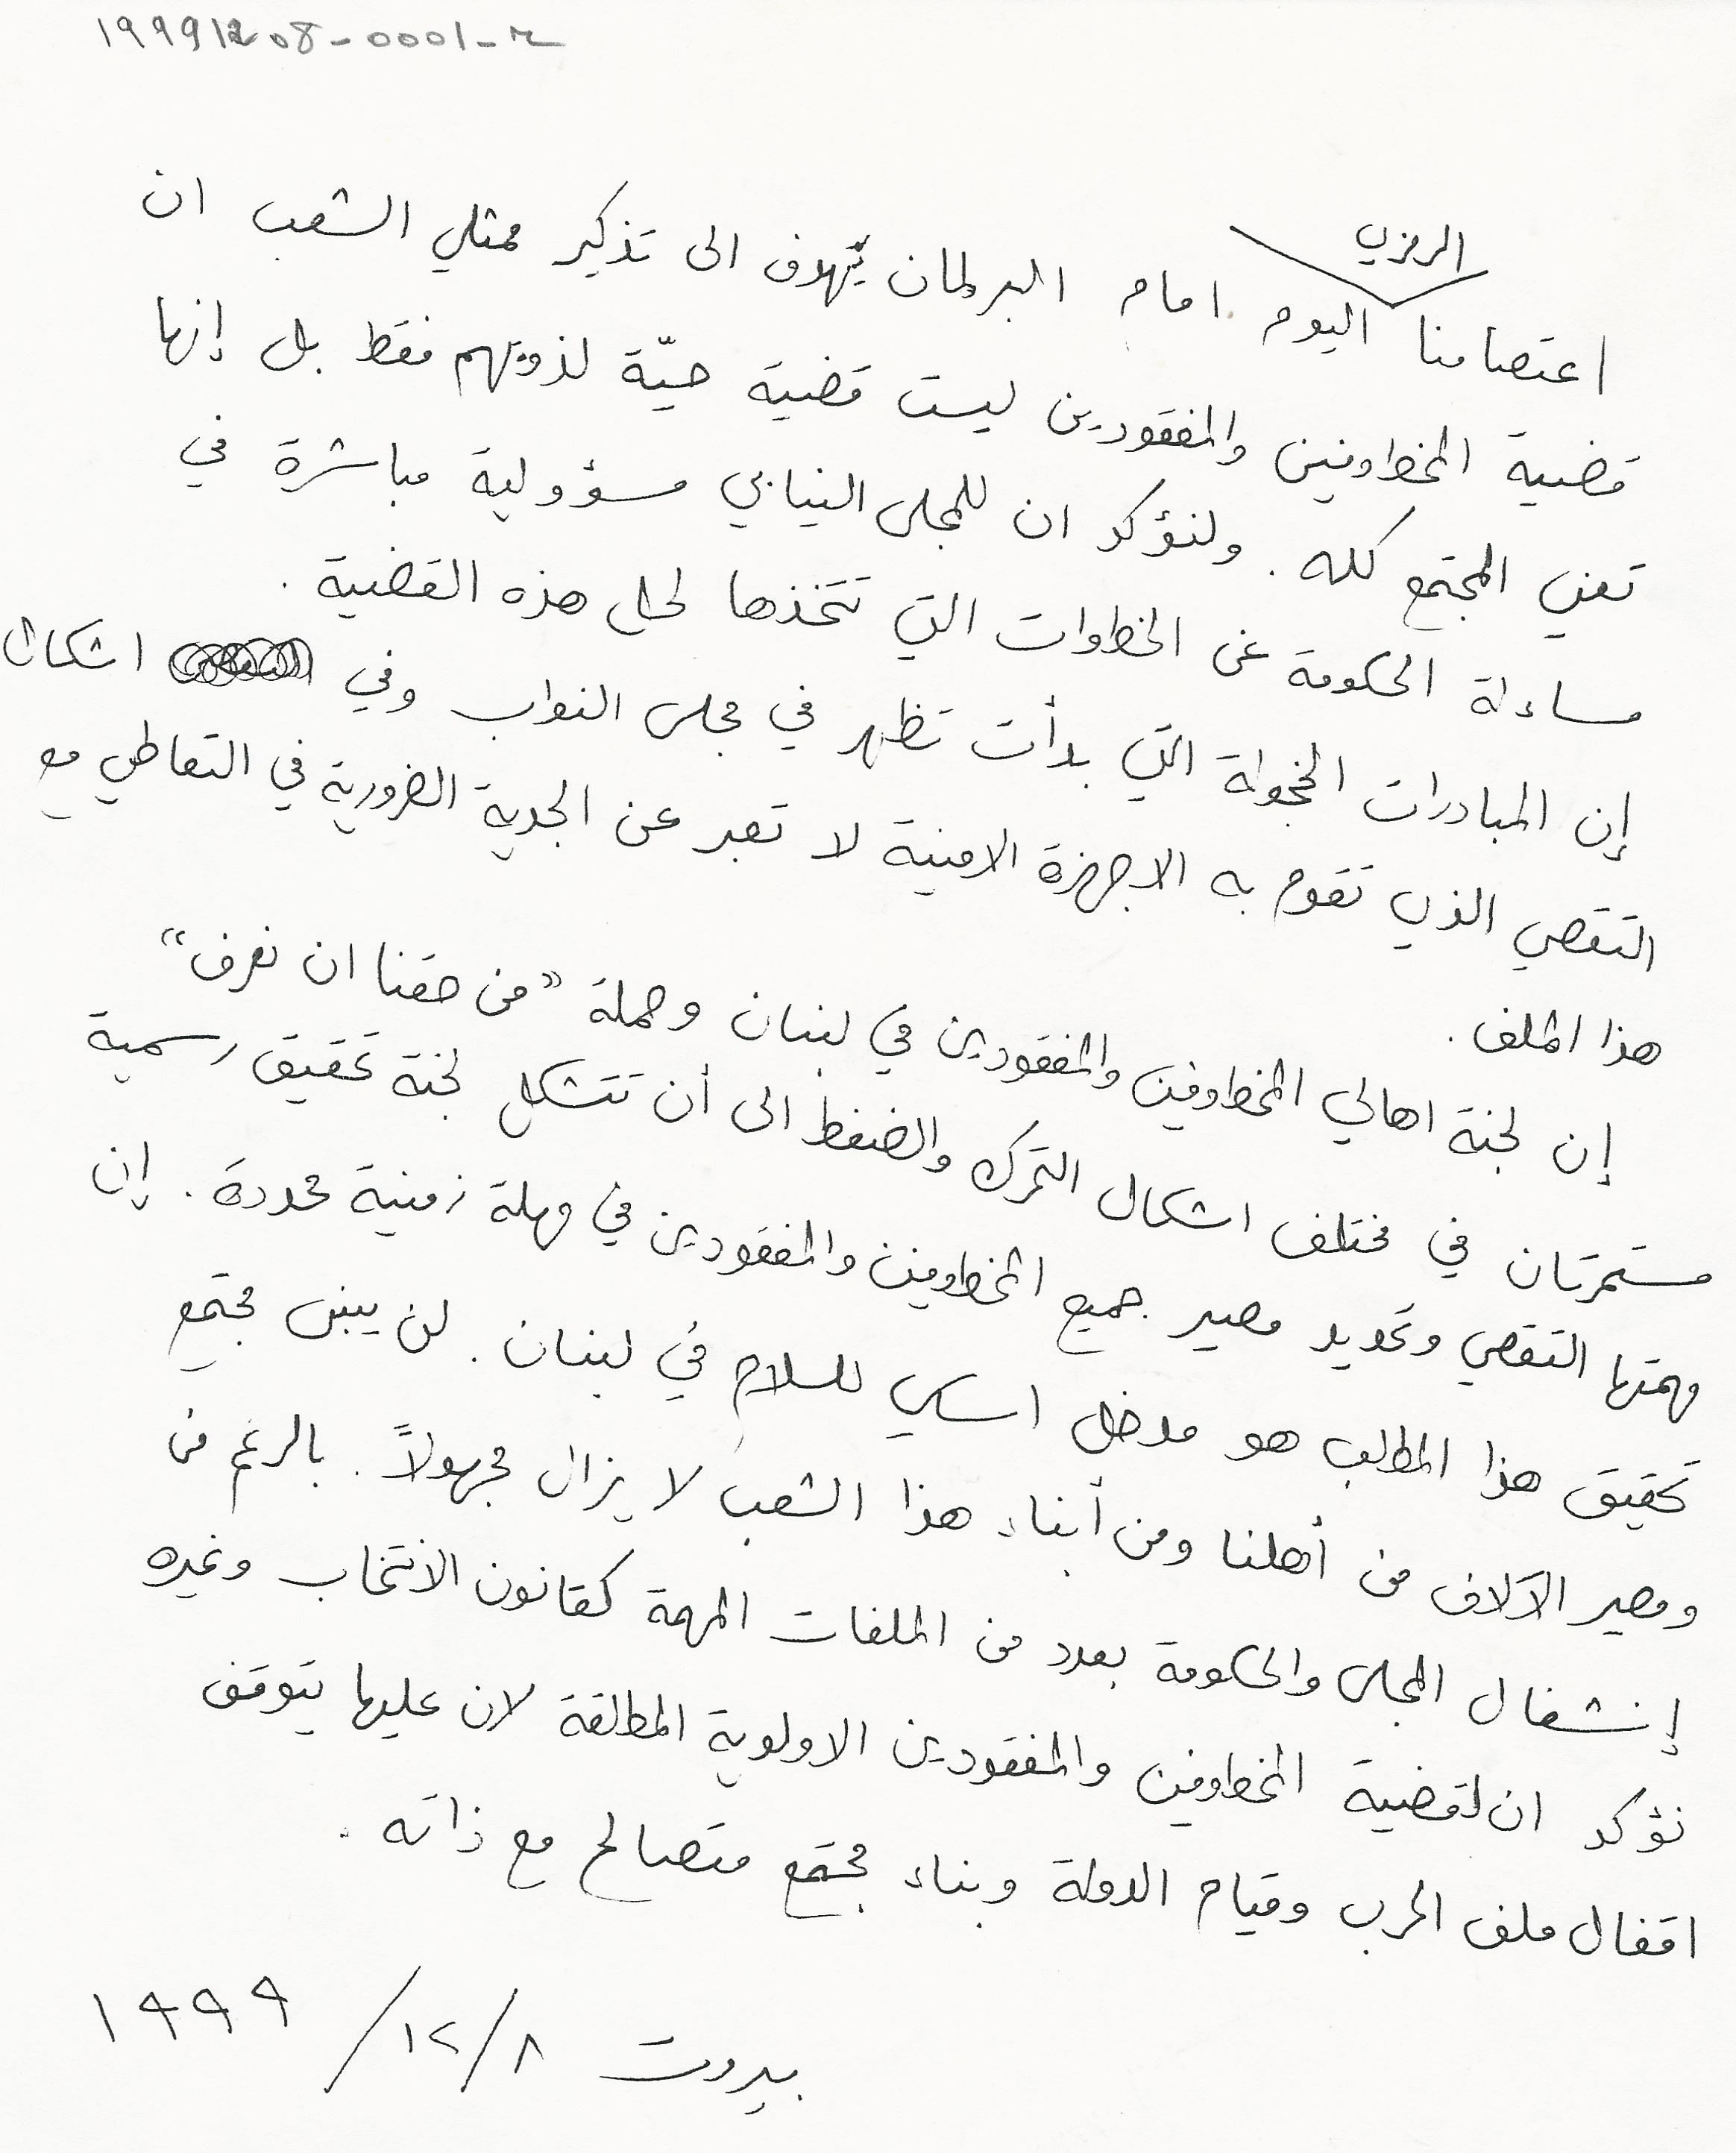 19991208-0001-م
الرمزي
اعتصامنا اليوم امام البرلمان يهدف الى تذكير ممثلي الشعب ان
قضية المخطوفين والمفقودين ليست قضية حيّة لذويهم فقط بل إنها
تعني المجتمع كله. ولنؤكد ان للمجلس النيابي مسؤولية مباشرة في
مساءلة الحكومة عن الخطوات التي تتخذها لحل هذه القضية.
إن المبادرات الخجولة التي بدأت تظهر في مجلس النواب وفي اشكال
التقصي الذي تقوم به الاجهزة الامنية لا تعبر عن الجدية الضرورية في التعاطي مع
هذا الملف.
إن لجنة اهالي المخطوفين والمفقودين في لبنان وحملة "من حقنا ان نعرف"
مستمرتان في مختلف اشكال التحرك والضغط الى أن تتشكل لجنة تحقيق رسمية
مهمتها التقصي وتحديد مصير جميع المخطوفين والمفقودين في مهلة زمنية محددة. إن
تحقيق هذا المطلب هو مدخل اساسي للسلام في لبنان. لن يبنى مجتمع
ومصير الآلاف من أهلنا ومن أبناء هذا الشعب لا يزال مجهولاً. بالرغم من
إنشغال المجلس والحكومة بعدد من الملفات المهمة كقانون الانتخاب وغيره
نؤكد ان لقضية المخطوفين والمفقودين الاولوية المطلقة لان عليها يتوقف
اقفال ملف الحرب وقيام الدولة وبناء مجتمع متصالح مع ذاته.
بيروت ٨/١٢/١٩٩٩